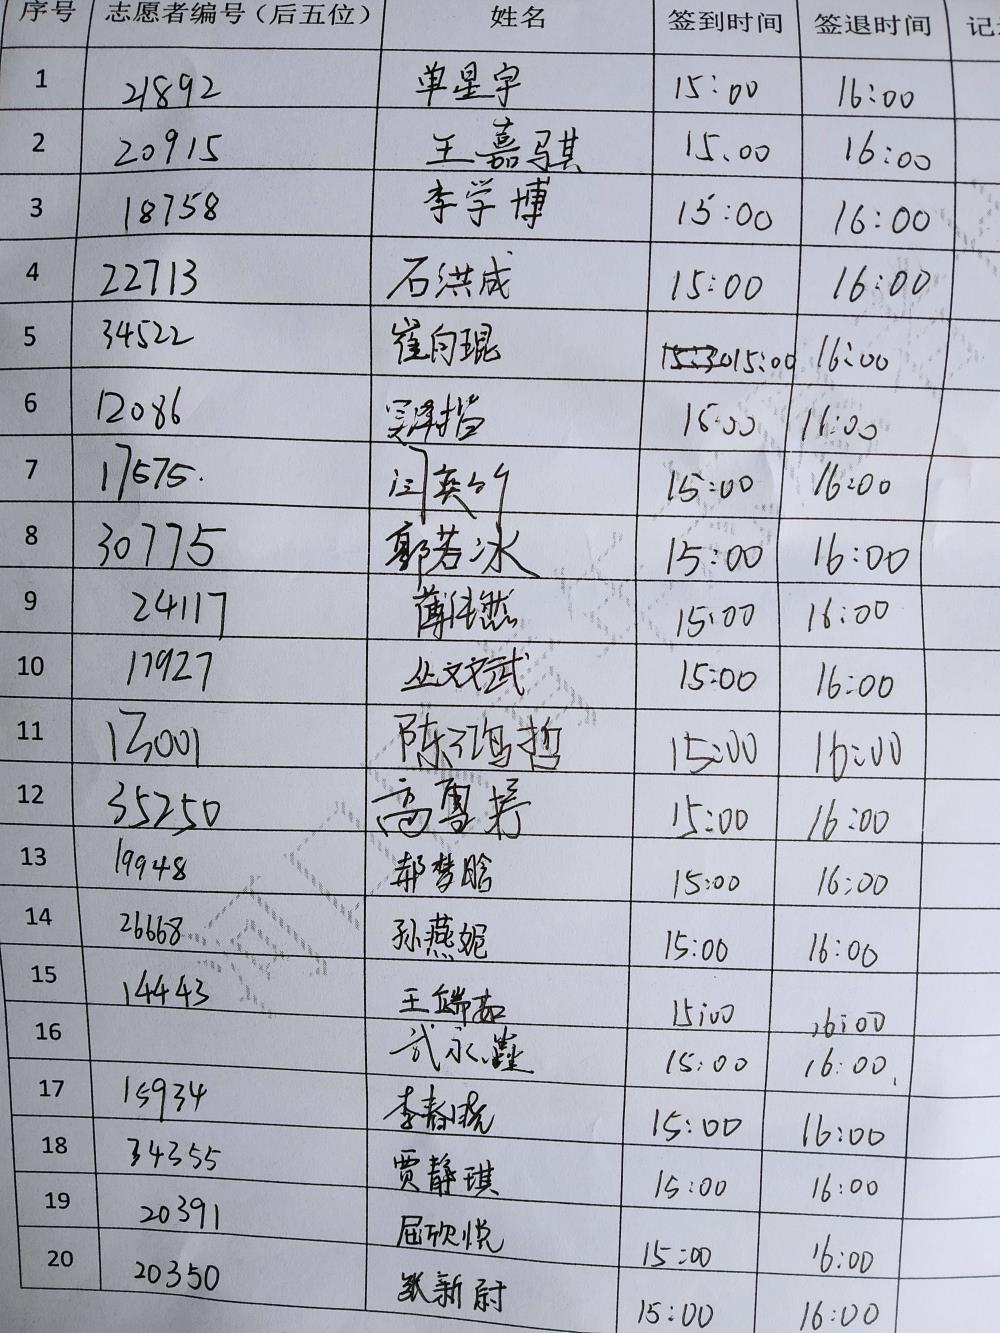 序号 志愿者编号（后五位） 姓名 签到时间 签退时间 记
1 21892 单星宇 15:00 16:00
2 20915 王嘉骐 15:00 16:00
3 18758 李学博 15:00 16:00
4 22713 石洪成 15:00 16:00
5 34522 崔自琨 15:00 16:00
6 12086 15:00 16:00
7 17575 闫奕 15:00 16:00
8 30775 郭若冰 15:00 16:00
9 24117 15:00 16:00
10 17927 丛文武 15:00 16:00
11 13001 陈鸿哲 15:00 16:00
12 35250 高雪 15:00 16:00
13 19948 郝梦晗 15:00 16:00
14 26668 孙燕妮 15:00 16:00
15 14443 王瑞茹 15:00 16:00
16 武永鑫 15:00 16:00
17 15934 李春晓 15:00 16:00
18 34355 贾静琪 15:00 16:00
19 20391 屈欣悦 15:00 16:00
20 20350 新尉 15:00 16:00